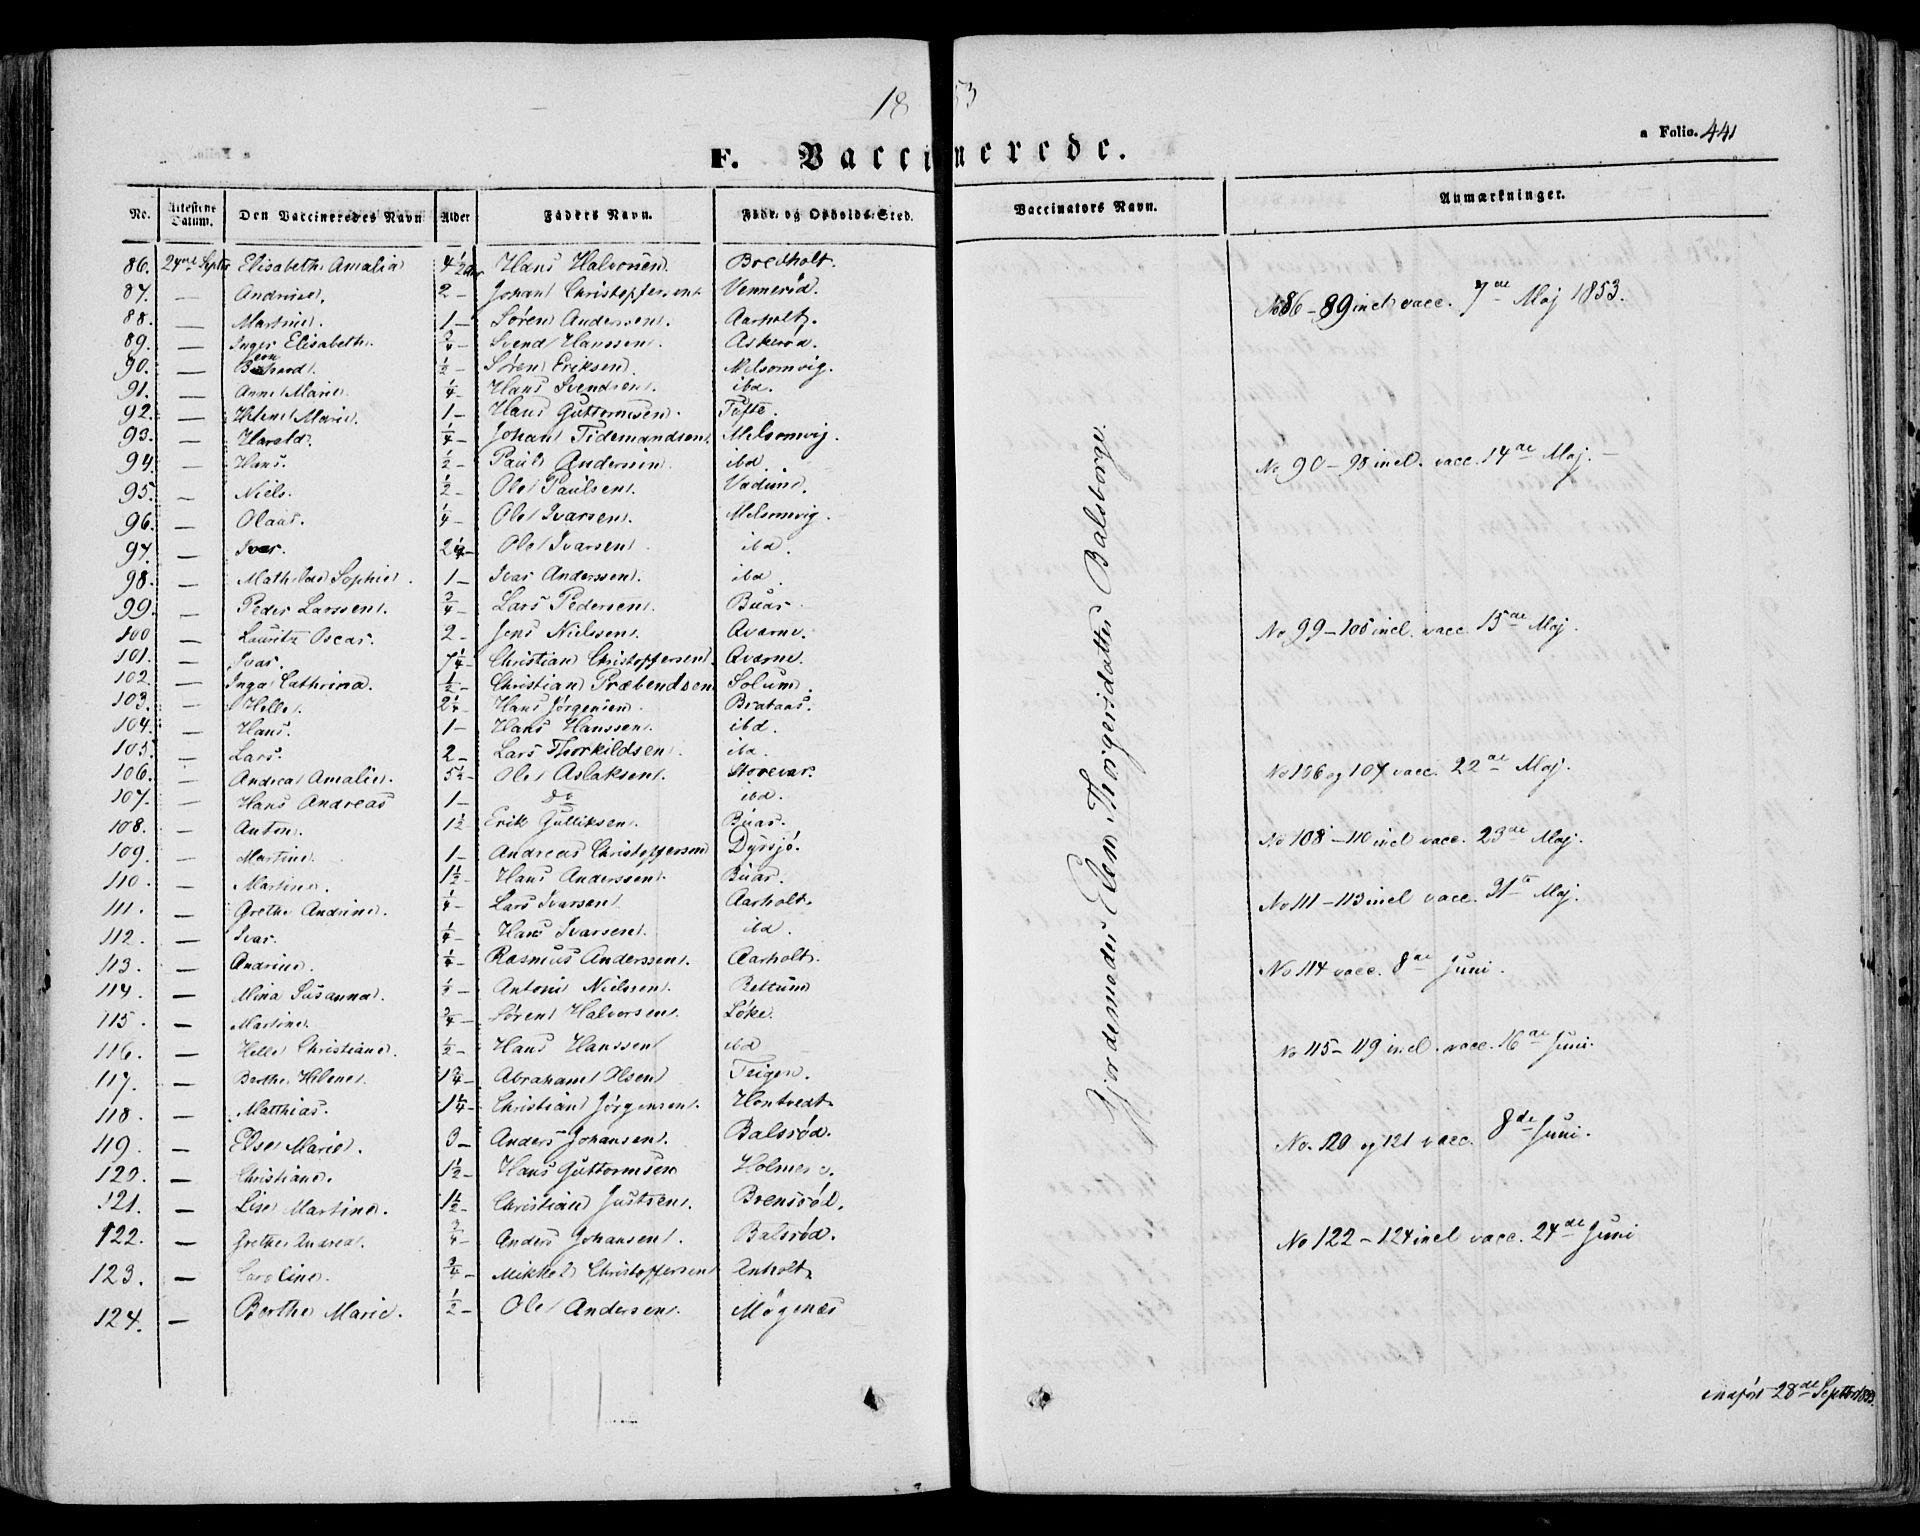 1853
a Folio. 441
F. Vaccinerede.
No. Attestens Datum. Den Vaccineredes Navn Alder Faders Navn. Føde- og Opholds-Sted. Vaccinators Navn. Anmærkninger.
86. 24de Septr Elisabeth Amalia 4 1/2 Aar Hans Halvorsen. Bredholt.
87. — Andrine. 2 — Johan Christophersen Vennerød.
88. — Martine. 1 — Søren Andersen. Aarholt.
89. — Inger Elisabeth. Svend Hanssen. Askerød.
90. — 1/2 — Søren Eriksen. Melsomvig.
91. — Anne Marie. 1/4 — Hans Svendsen. ibd.
92. — Marie. 1 — Hans Guttormsen. Tofte.
93. — Harald. 1/4 — Johan Tidemandsen. Melsomvig.
94. — Hans. 1/2 — Paul Andersen ibd.
95. — Niels. 1/2 — Ole Paulsen.
96. — Olaus. 1/4 — Ole Ivarsen. Melsomvig.
97. — Ivar. 2 1/4 — Ole Ivarsen ibd.
98. — Mathilde Sophie. 1 — Ivar Anderssen. ibd.
99. — Peder Larssen. 3/4 — Lars Pedersen. Buar.
100 — Lauritz Oscar. 2 — Jens Nielssen. Qvarne.
101. — Ivar. 7 1/4 — Christian Christophersen. Qværne.
102. — Inga Cathrina. 1/2 — Christian Præbendsen Solum.
103. — Helle. 2 1/4 — Hans Jørgensen. Brataas.
104. — Hans. 1 — Hans Hanssen. ibd.
105. — Lars. 2 — Lars Thorkildsen. ibd.
106. — Andrea Amalie. 5 1/2 — Ole Aslaksen. Storevar.
107. — Hans Andreas 1 — do ibd.
108. — Anton. 1 1/2 Erik Gulliksen. Buar.
109. — Martine. 1 — Andreas Christophersen Dyrsjø.
110. — Martine. 1 1/2 — Hans Anderssen. Buar.
111. — Grethe Andrine. 1/4 — Lars Ivarsen. Aarholt.
112. — Ivar. 1/4 — Hans Ivarsen. ibd.
113. — Andrine. 1/4 — Rasmus Anderssen. Aarholt.
114. — Mina Susanna. 1/2 — Anton Nielssen. Bettum
115. — Martine. 3/4 — Søren Halvorsen. Løke.
116. — Helle Christiane. 1/2 — Hans Hanssen ibd
117. — Berthe Helene. 1 3/4 — Abraham Olsen Teigen.
118. — Matthias. 1 1/4 — Christian Jørgensen. Hontvedt
119. — Else Marie. 3 — Anders Johansen. Balsrød.
120. — Christiane. 1 1/2 — Hans Guttormsen Holmene.
121. — Lise Martine. 1 1/2 — Christian Justsen. Brensrød.
122. — Grethe Andrea. 3/4 — Anders Johansen. Balsrød.
123. — Caroline. 3/4 — Mikkel Christophersen Anholt
124. — Berthe Marie. 1/2 — Ole Andersen. Møgenæs
Gjordemoder Elen Thorgersdatter Balsborge.
No 86 – 89 incl vacc. 7de Maj 1853.
No 90 – 98 incl. vacc. 14de Maj. —
No 99 – 105 incl. vacc. 15de Maj.
No 106 og 107 vacc. 22de Maj.
No 108 – 110 incl vacc. 23de Maj.
No 111 – 113 incl vacc. 31te Maj.
No 114 vacc. 8de Juni.
No 115 – 119 incl. vacc. 16de Juni.
No. 120 og 121 vacc. 8de Juni.
No 122 – 124 incl vacc. 24de Juni
indført 28de Septbr 1853.